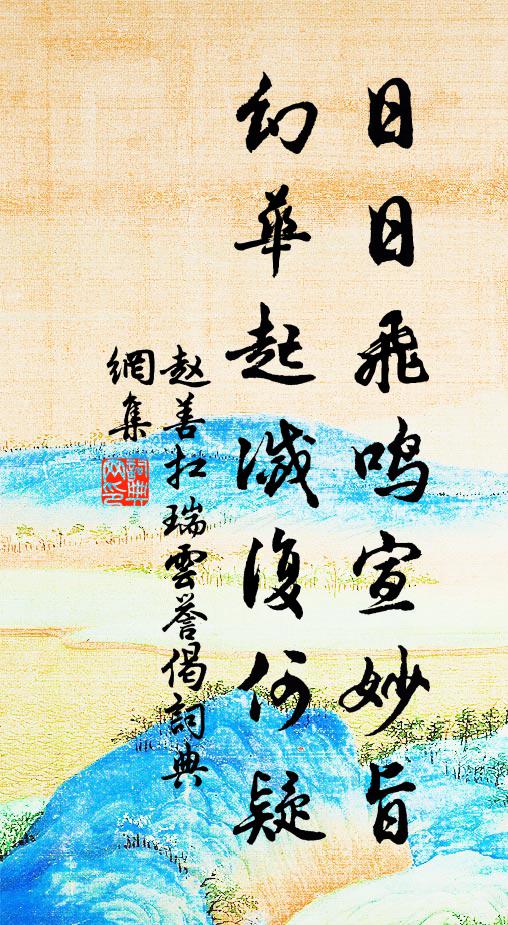 日日飛鸣宣妙旨
幻華起滅復何疑
赵善扛瑞雲誉偈詞典
網集